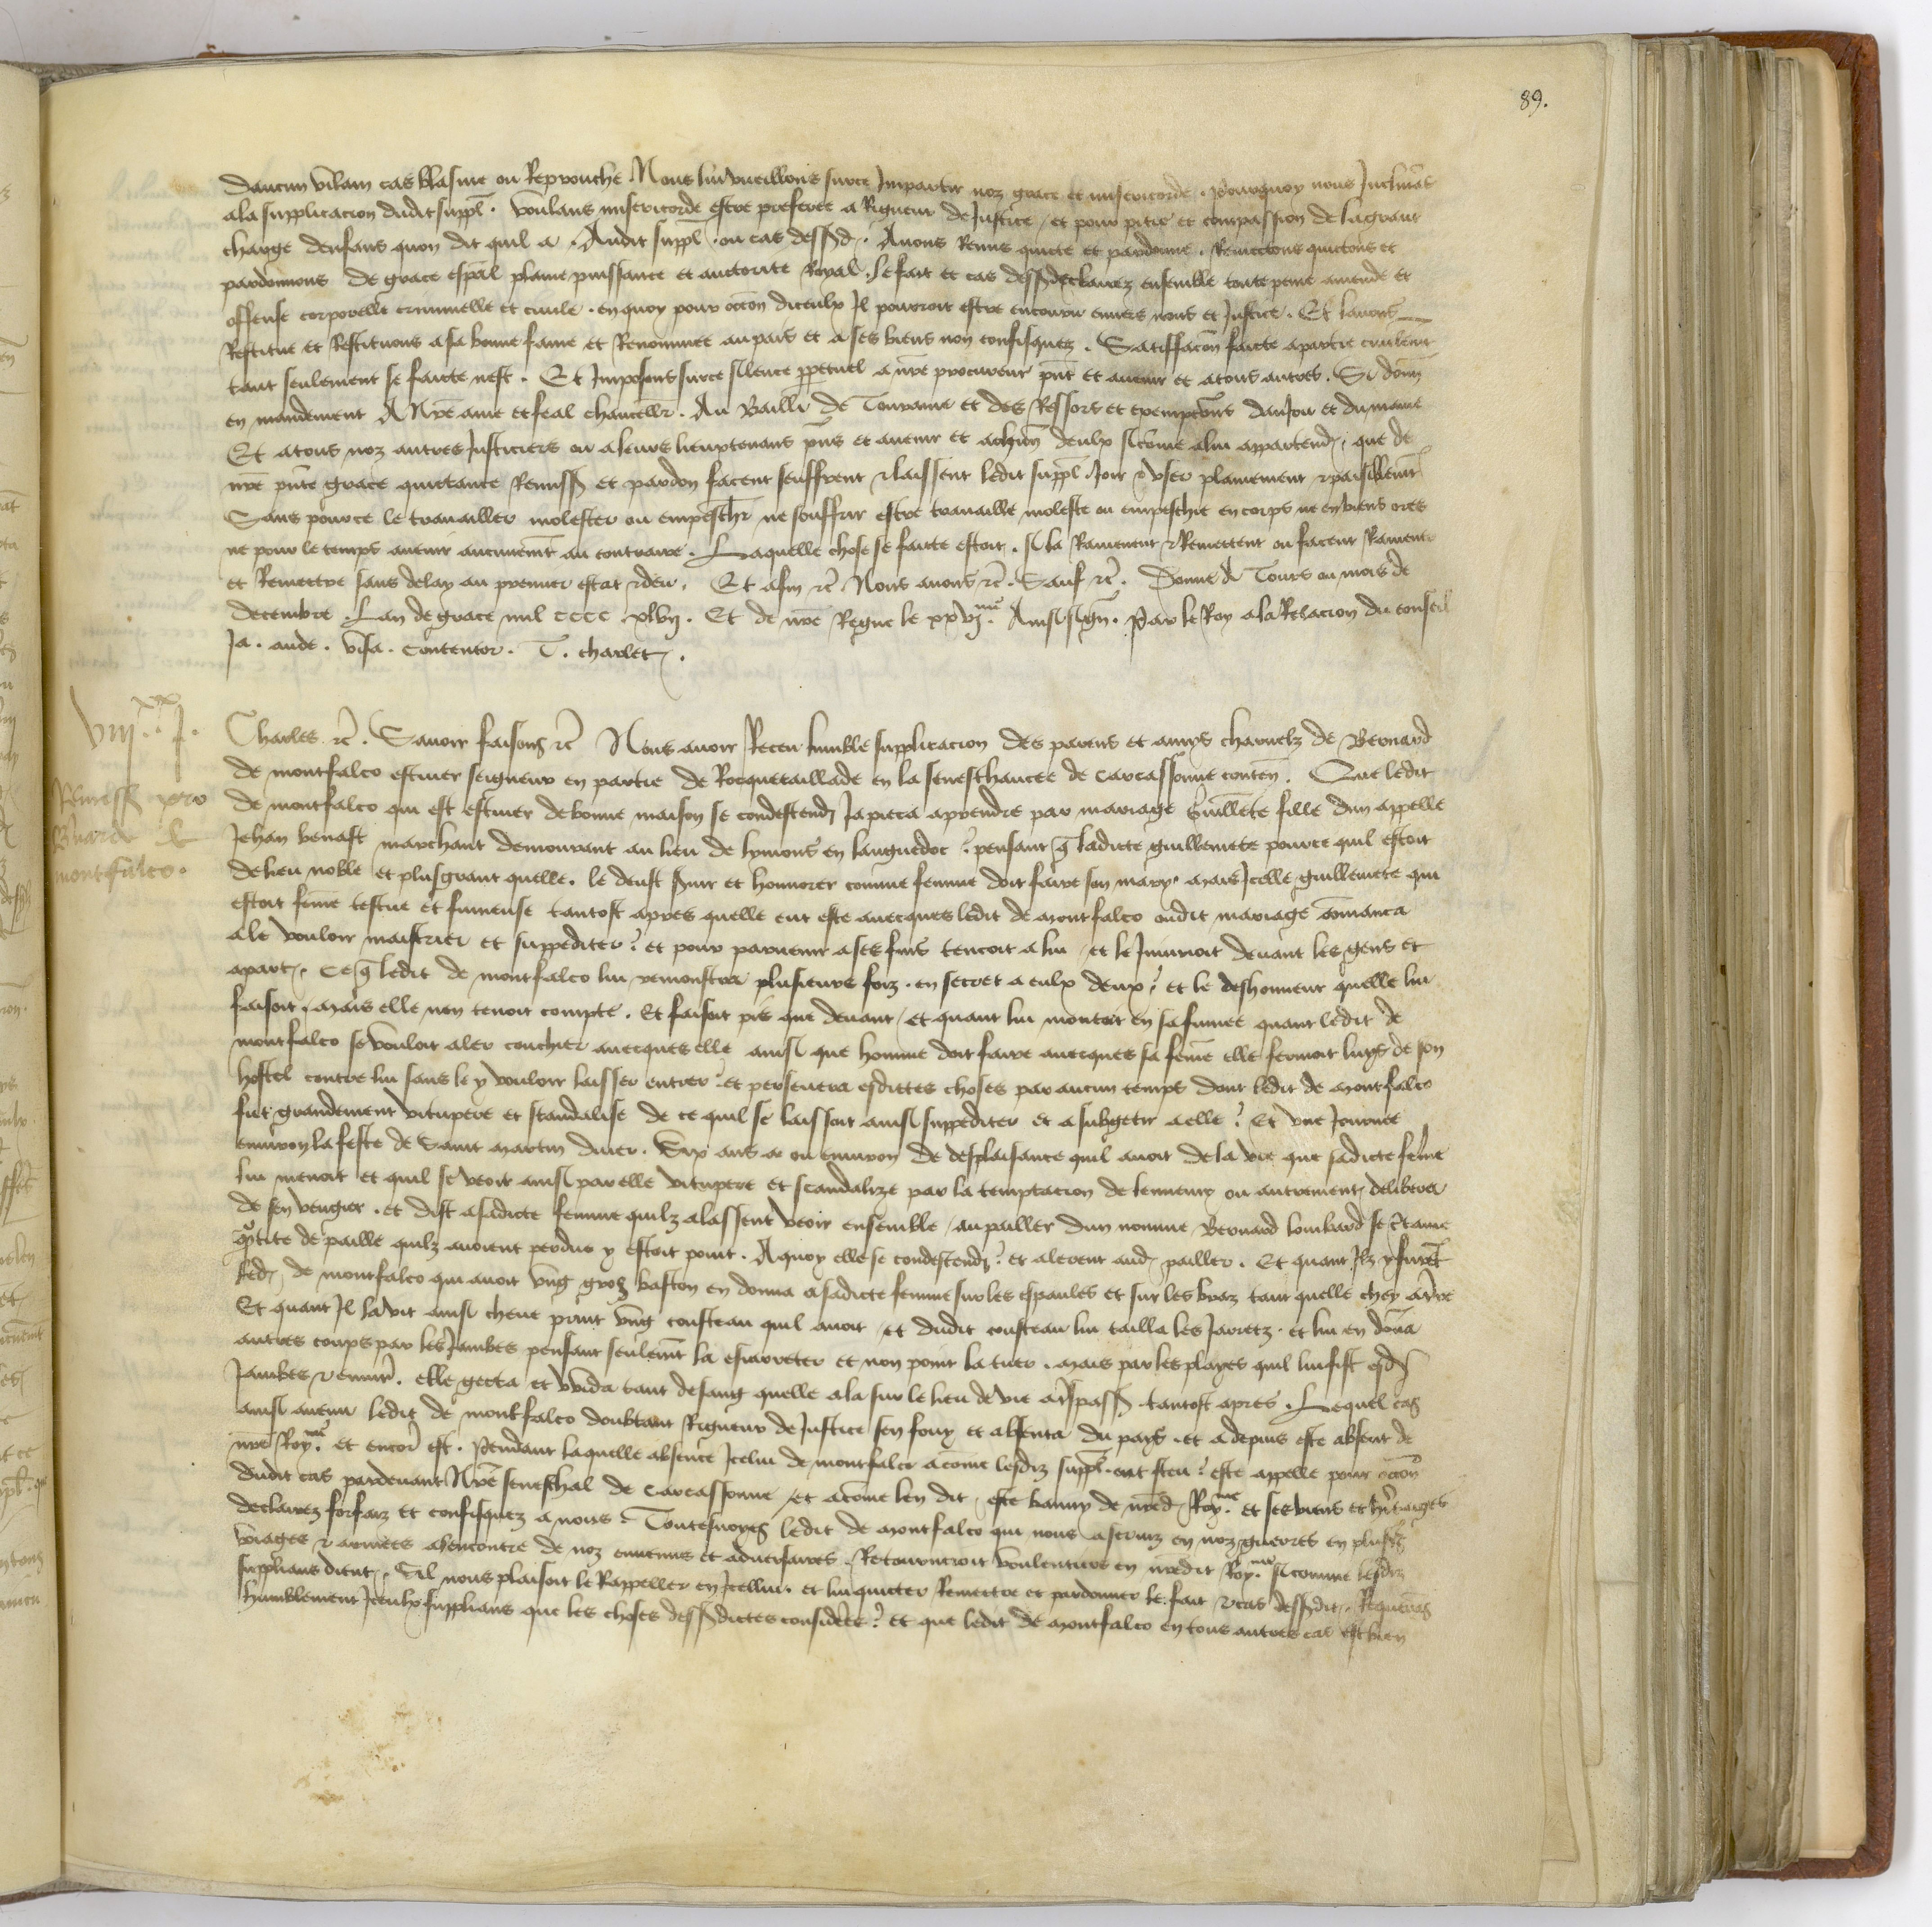 89.
daucun vilain cas blasme ou Reprouche Nous lui vueillons surce Impartir noz grace et misericorde . Pourquoy nous Inclinãs
ala supplicacion dudit suppl̃ . voulans misericorde estre preferee a Rigueur de Justice / et pour pitie et compassion de la grant
charge denfans quon dit quil a . Audit suppl̃ . ou cas dessusd . Auons Remis quicte et pardonne . Remectons quictons et
pardonnons de grace esp̃al plaine puissance et auctorite Royal . le fait et cas dess declairez ensemble toute peine amende et
offense corporelle criminelle et ciuile . en quoy pour occõn diceulx Il pourroit estre encouru enuers nous et Justice . Et lauons
Restitue et Restituons a sa bonne fame et Renommee au pais et a ses biens non confisquez . Satisfacõn faicte a partie ciuilemt̃
tant seulement se faicte nest . Et Imposons surce silence p̱petuel a nr̃e procureur pñt et auenir et atous autres . Si donñ
en mandement A Nr̃e ame et feal chancellr̃ . Au Bailli de Touraine et des Ressors et exempcõns danjou et du maine
Et atous noz autres Justiciers ou a leurs lieuxtenans pñs et auenir et achũn deulx si cõme a lui appartend . que de
nr̃e pñte grace quictance Remiss et pardon facent seuffrent & laissent ledit suppl̃ Joir & vser plainement & paisiblemt̃
Sans pource le trauailler molester ou empeschr̃ ne souffrir estre trauaille moleste ou empeschie en corps ne en biens ores
ne pour le temps auenir aucunemt̃ au contraire . Laquelle chose se faicte estoit . si la Ramenent & Remectent ou facent Ramener
et Remectre sans delay au premier estat & deu . Et afin &c̃ Nous auons &c̃ . Sauf &c̃ . Donne A Tours ou mois de
decembre . Lan de grace mil cccc xlvij . Et de nr̃e Regne le xxvj me . Ainsi signe . Par le Roy ala Relacion du conseil
Ja . aude . visa . Contentor . T . charlet .
viii xx j .
Remiss pro
Bñardo de
montfalco .
Charles &c̃ . Sauoir faisons &c̃ Nous auoir Receu humble supplicacion des parens et amys charnelz de Bernard
de montfalco escuier seigneur en partie de Rocquetaillade en la seneschaucee de Carcassonne conteñ . Que ledit
de montfalco qui est escuier de bonne maison se condescendj Ja pieca aprendre par mariage Guill̃ete fille dun appelle
Jehan benast marchant demourant au lieu de lymons en languedoc . pensant q̃ ladicte guillemete pource quil estoit
de lieu noble et plus grant quelle . le deust s̃uir et honnorer comme femme doit faire son mary . mais Icelle guillemete qui
estoit fem̃e testue et fumeuse tantost apres quelle eut este auecques ledit de montfalco oudit mariage cõmanca
ale vouloir maistrier et suppediter . et pour paruenir a ses fins tencoit a lui / et le Iniurioit deuant les gens et
apart . Ce q̃ ledit de montfalco lui remonstra plusieurs foiz . en secret a eulx deux . et le deshonneur quelle lui
faisoit . mais elle nen tenoit compte . Et faisoit pis que deuant / et quant lui montoit en sa fumee quant ledit de
montfalco se vouloit aler couchier auecques elle ainsi que homme doit faire auecques sa fem̃e elle fermoit luys de son
hostel contre lui sans le y vouloir laisser entrer . et perseuera esdictes choses par aucun temps dont ledit de montfalco
fut grandement vitupere et scandalise de ce quil se laissoit ainsi suppediter et asubgetir a elle . Et vne Journee
enuiron la feste de Saint martin diuer . Six ans a ou enuiron de desplaisance quil auoit de la vie que sadicte fem̃e
lui menoit et quil se veoit ainsi par elle vitupere et scandalize par la temptacion de lennemy ou autrement delibera
de sen vengier . et dist a sadicte femme quilz alassent veoir ensemble / au pailler dun nomme Bernard lombard se c̃taine
q̃ntite de paille quilz auoient perdue y estoit point . A quoy elle se condescendj . et alerent aud pailler . Et quant Ilz y furẽt
led de montfalco qui auoit vng gros baston en donna a sadicte femme sur les espaules et sur les braz tant quelle chey a t̃re
Et quant Il la vit ainsi cheue print vng cousteau quil auoit / et dudit cousteau lui tailla les Jarretz . et lui en donna
autres coups par les Jambes pensant seulemt̃ la esjarreter et non point la tuer . mais par les playes quil lui fist esd
Jambes & enuirõ . elle gecta et vuida tant de sang quelle ala sur le lieu de vie a trespass tantost apres . Lequel cas
ainsi auenu ledit de montfalco doubtant Rigueur de Justice sen fouy et absenta du pays . et a depuis este absent de
nr̃e Roy.me et encor̃ est . Pendant laquelle absence Icelui de montfalco a cõme lesdiz suppl̃ . ont sceu . este appelle pour occõn
dudit cas pardeuant Nr̃e seneschal de Carcassonne / et a cõme len dit / este banny de nr̃ed Roy.me et ses biens et hr̃itaiges
declairez forfaiz et confisquez a nous . Toutesuoyes ledit de montfalco qui nous a seruiz en noz guerres en plus̃
voiages & armees alencontre de noz ennemis et aduersaires . Retourneroit voulentiers en nr̃edit Roy.me si comme lesdiz
supplians dient . Sil nous plaisoit le Rappeller en Icellui . et lui quicter Remectre et pardonner le fait & cas dessusdit . Requerãs
humblement Iceulx supplians que les choses dessusdictes considerees . et que ledit de montfalco en tous autres cas est bien